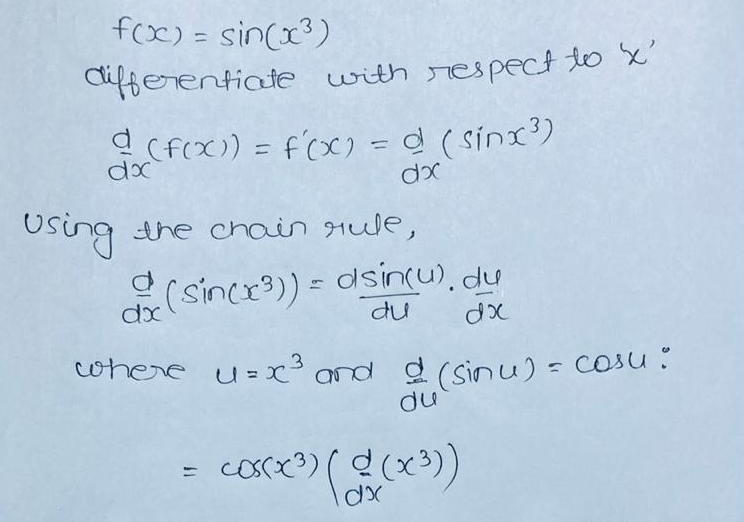 f(x) = sin(x³)
differentiate with respect to 'x'
d/dx (f(x)) = f'(x) = d/dx (sinx³)
Using the chain rule,
d/dx (sin(x³)) = dsin(u)/du . du/dx
where u = x³ and d/du (sinu) = cosu :
= cos(x³) (d/dx (x³))